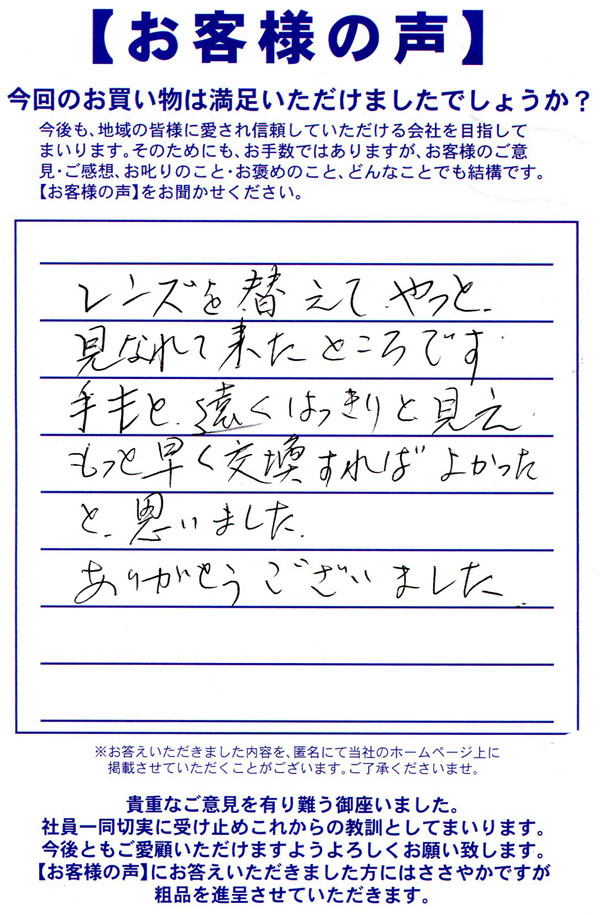 【お客様の声】
今回のお買い物は満足いただけましたでしょうか？
今後も、地域の皆様に愛され信頼していただける会社を目指して
まいります。そのためにも、お手数ではありますが、お客様のご意
見・ご感想、お叱りのこと・お褒めのこと、どんなことでも結構です。
【お客様の声】をお聞かせください。
レンズを替えてやっと
見なれて来たところです
手もと、遠くはっきりと見え
もっと早く交換すればよかった
と思いました.
ありがとうございました.
※お答えいただきました内容を、匿名にて当社のホームページ上に
掲載させていただくことがございます。ご了承くださいませ。
貴重なご意見を有り難う御座いました。
社員一同切実に受け止めこれからの教訓としてまいります。
今後ともご愛顧いただけますようよろしくお願い致します。
【お客様の声】にお答えいただきました方にはささやかですが
粗品を進呈させていただきます。